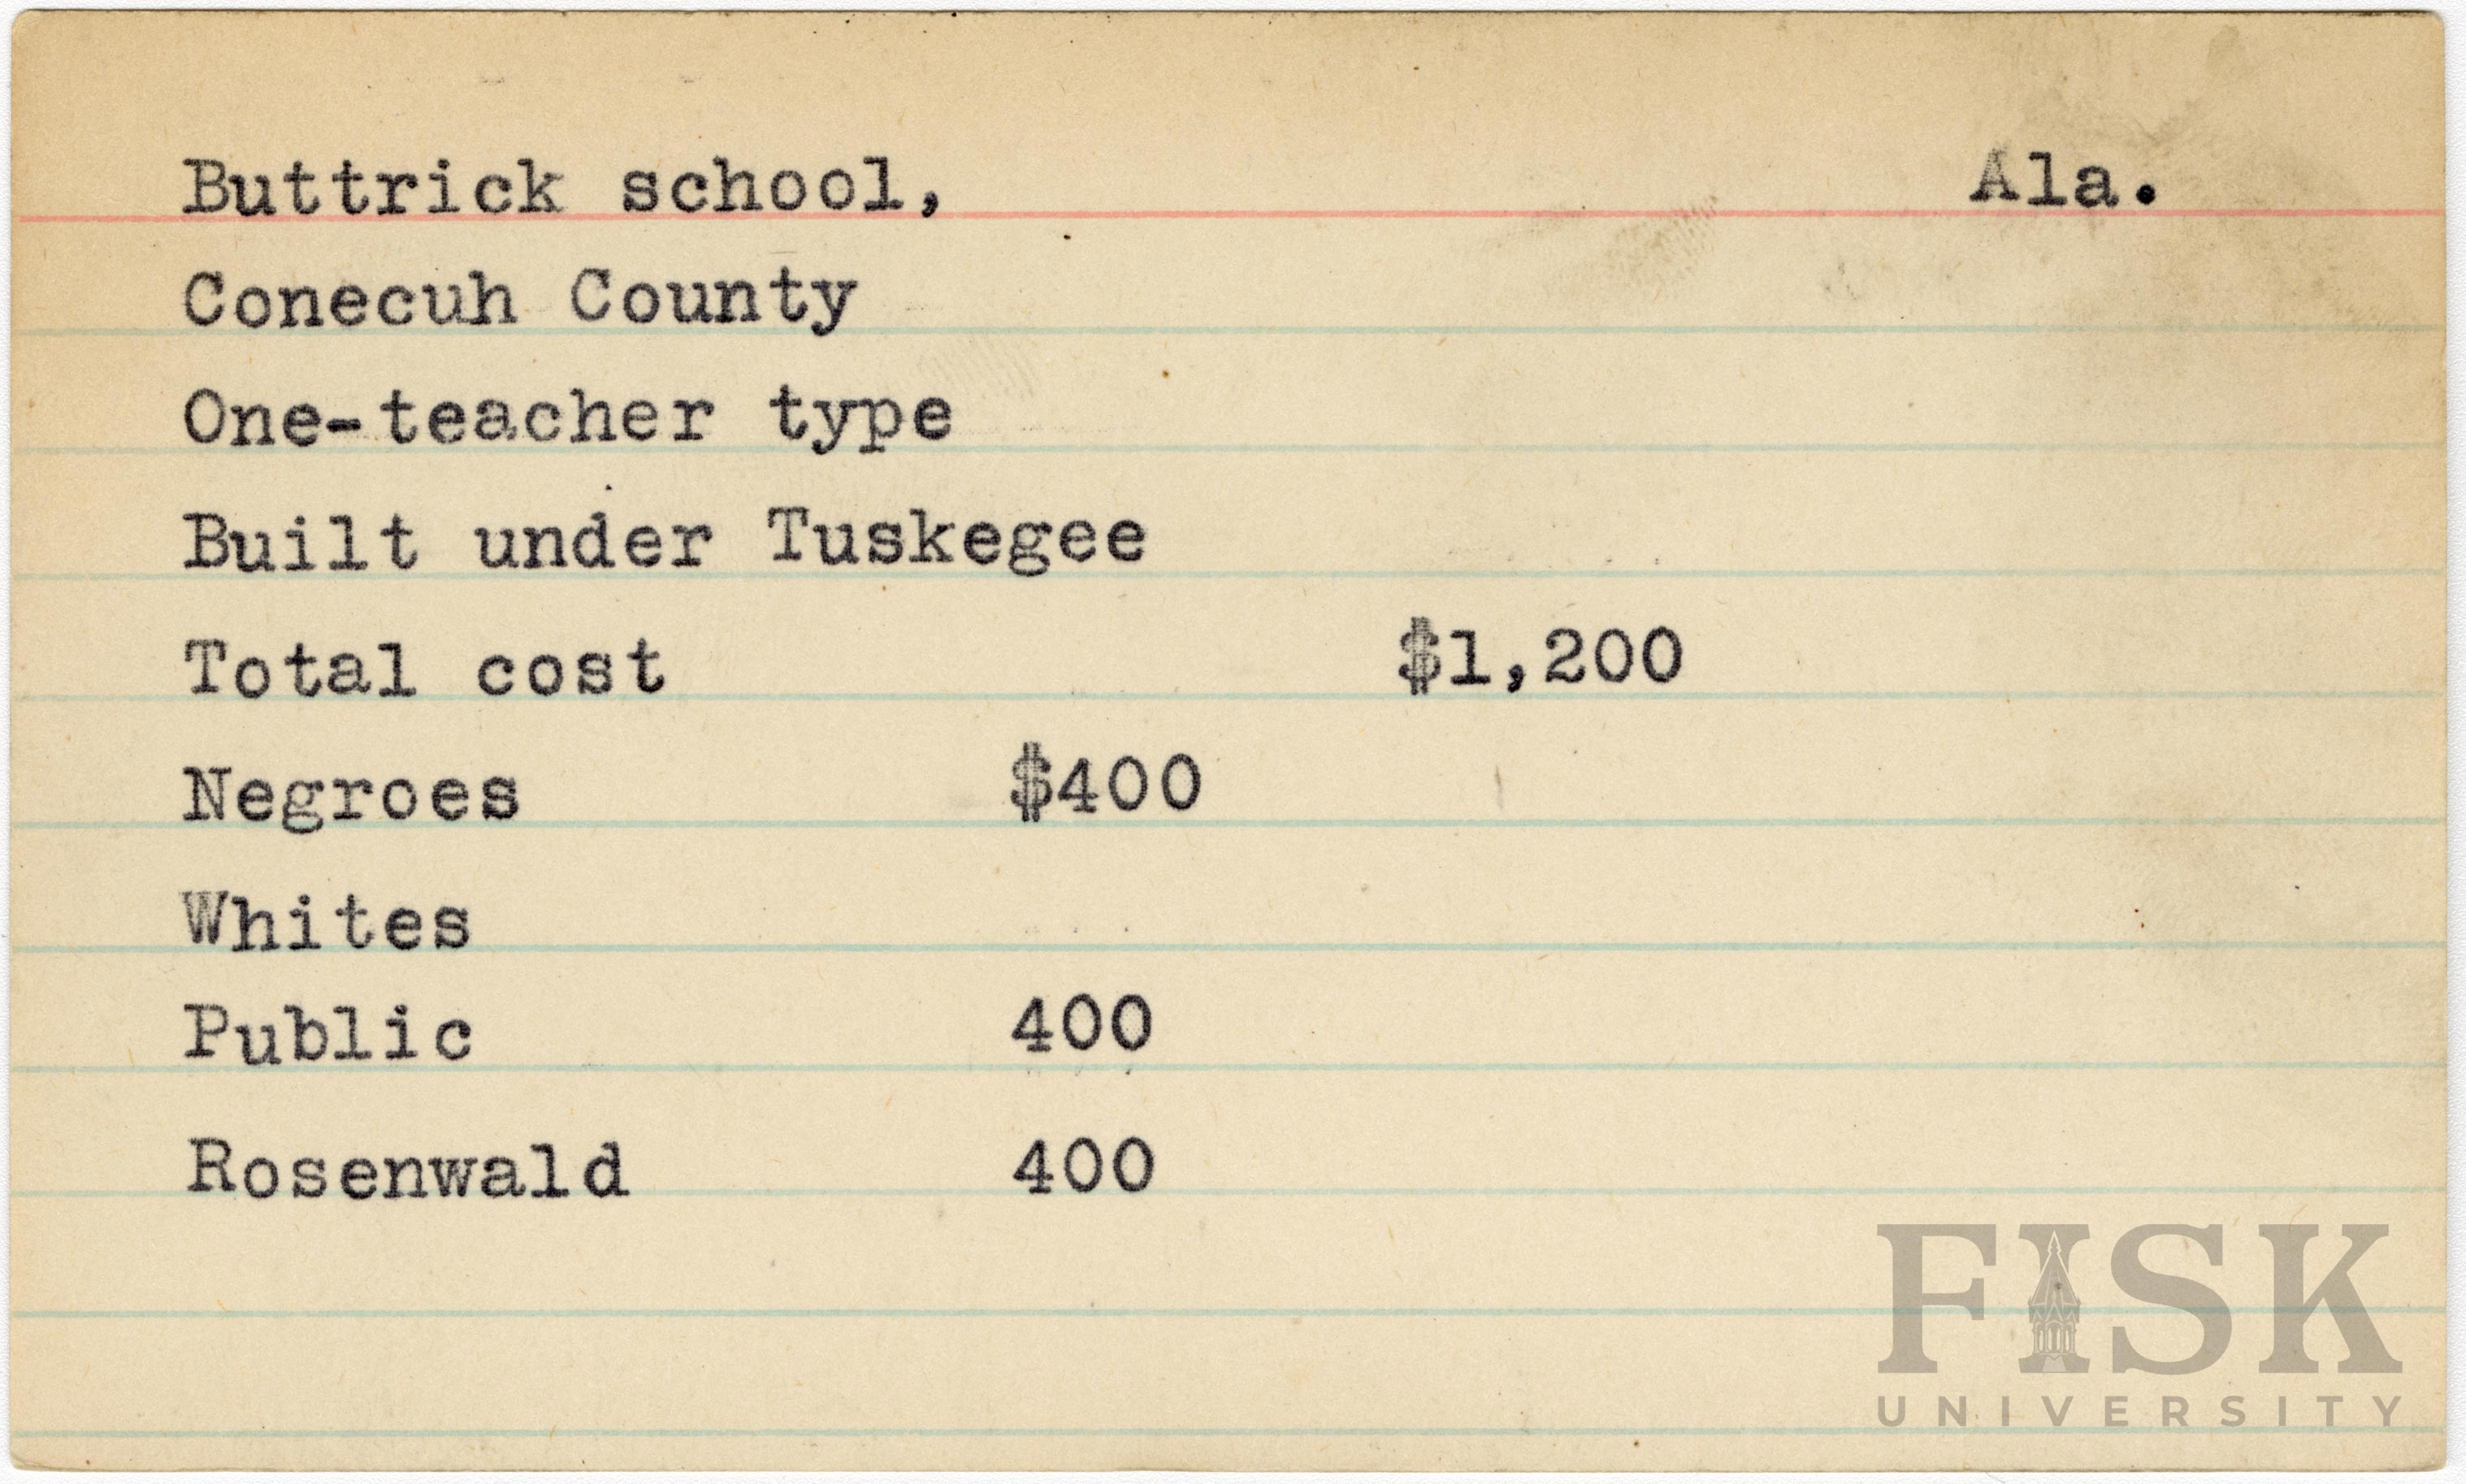 Buttrick school, Ala.
Conecuh County
One-teacher type
Built under Tuskegee
Total cost $1,200
Negroes $400
Whites
Public 400
Rosenwald 400
FISK
UNIVERSITY